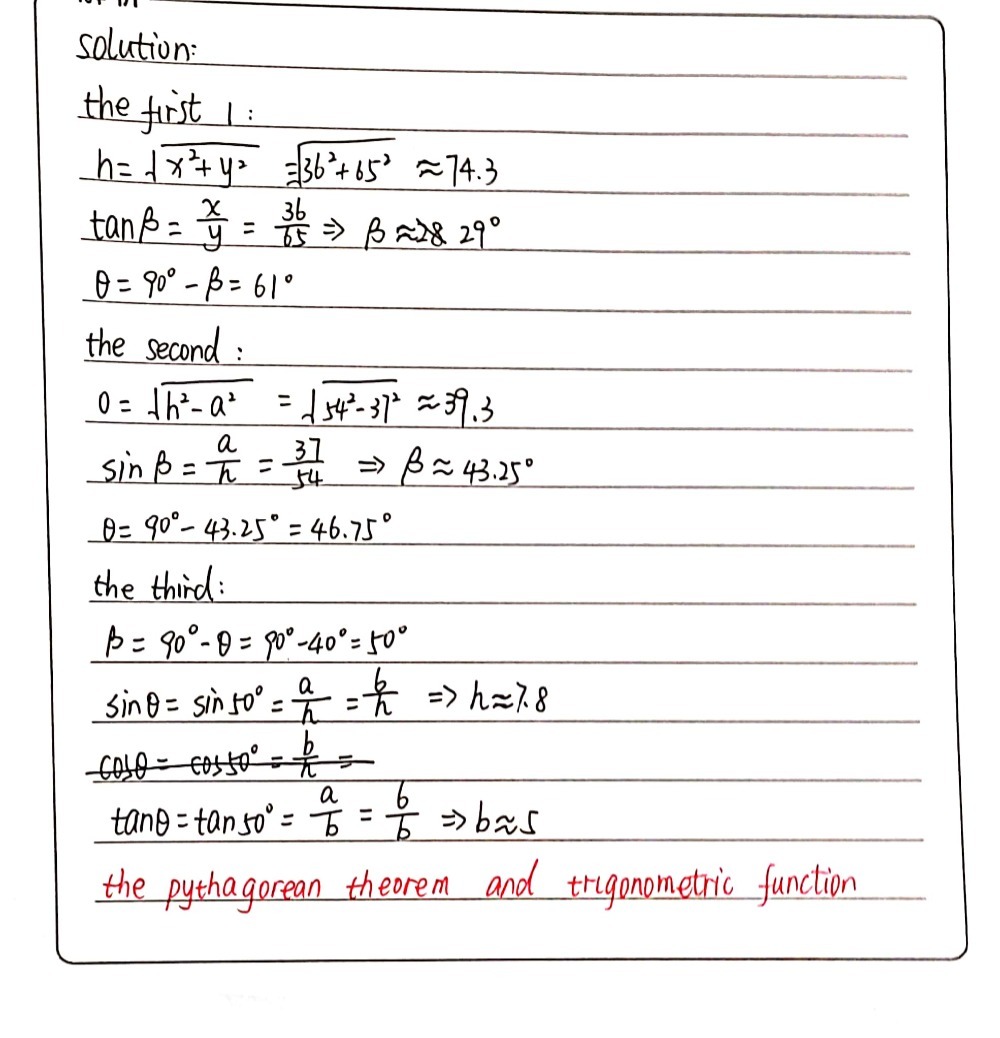 solution:
the first 1:
h=√x²+y² =√36²+65² ≈74.3
tanβ = x/y = 36/65 ⇒ β≈28 29°
θ = 90° - β = 61°
the second:
o = √h²-a² = √54²-37² ≈39.3
sin β = a/h = 37/54 ⇒ β ≈ 43.25°
θ= 90°- 43.25° = 46.75°
the third:
β = 90°-θ = 90°-40°=50°
sinθ = sin50° = a/h = 6/h => h≈7.8
cosθ = cos50° = b/h =
tanθ = tan50° = a/b = 6/b => b≈5
the pythagorean theorem and trigonometric function